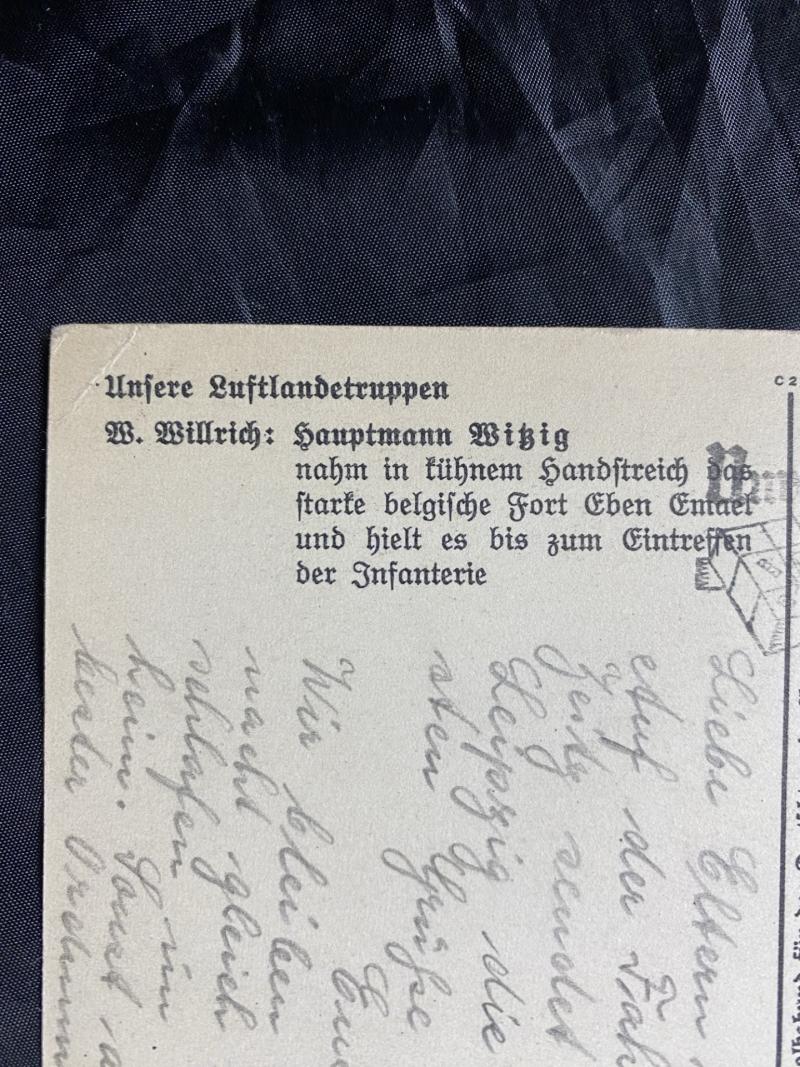 Unsere Luftlandetruppen
W. Willrich: Hauptmann Witzig
nahm in kühnem Handstreich das
starke belgische Fort Eben Emael
und hielt es bis zum Eintreffen
der Infanterie
C 2
Liebe Eltern
Auf der
sendet
Leipzig die
sten Grüße
Wir bleiben
nacht gleich
schlafen im
heim. Sonst